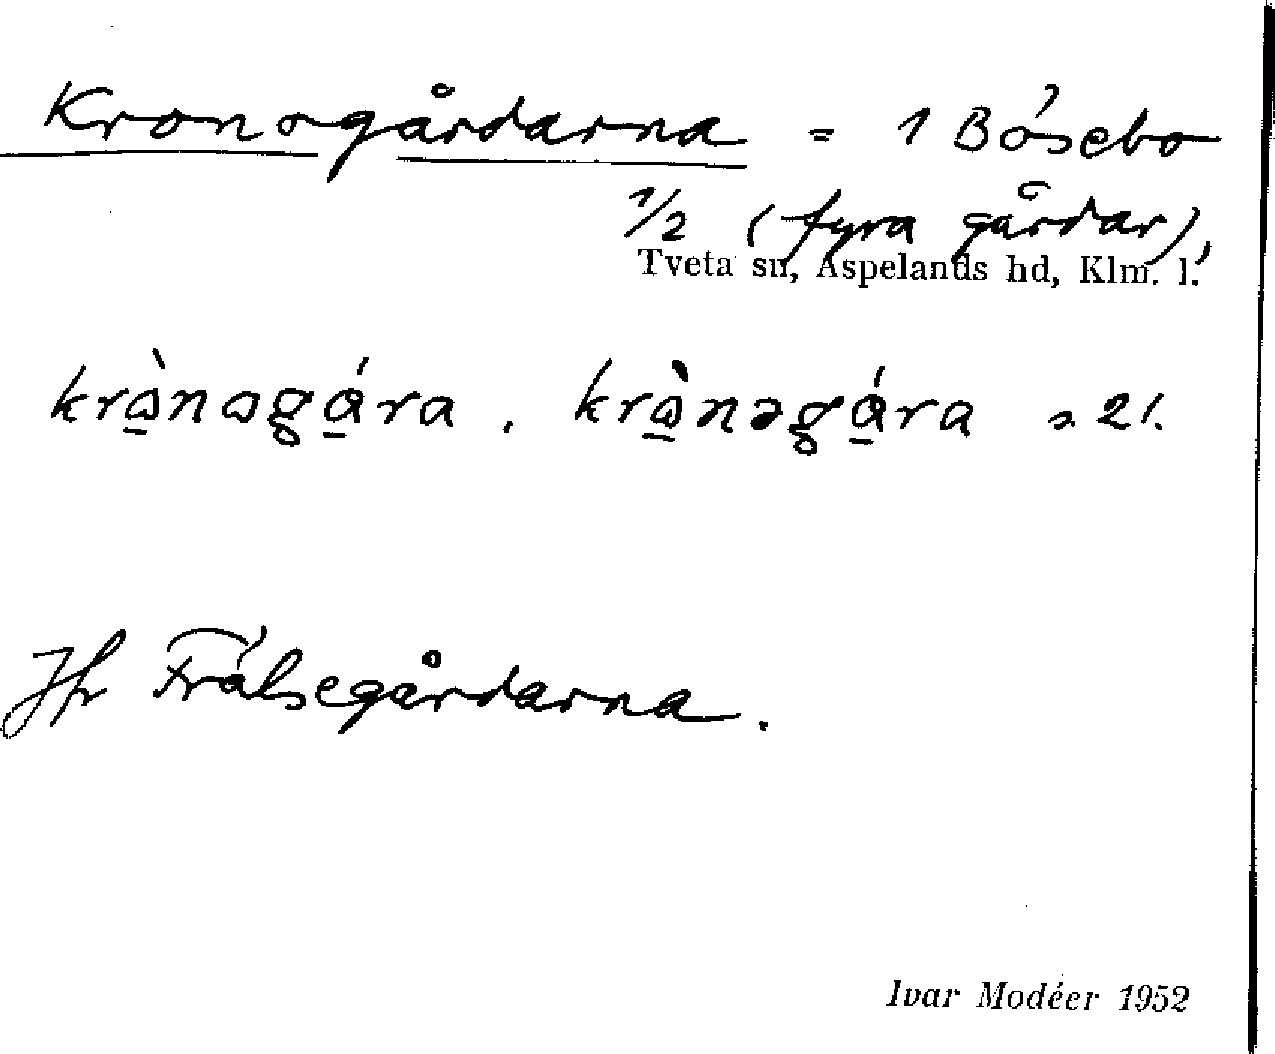 Kronogårdarna = 1 Bösebo
1/2 (fyra gårdar),
Tveta sn, Aspelands hd, Klm. l.
krò̱nogá̱ra, krò̱nəgá̱ra
Jfr Frälsegårdarna.
Ivar Modéer 1952